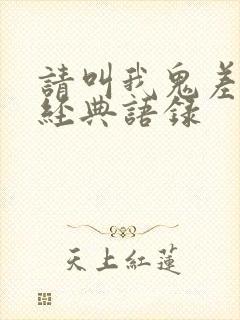 請叫我鬼差
經典語錄
天上紅蓮